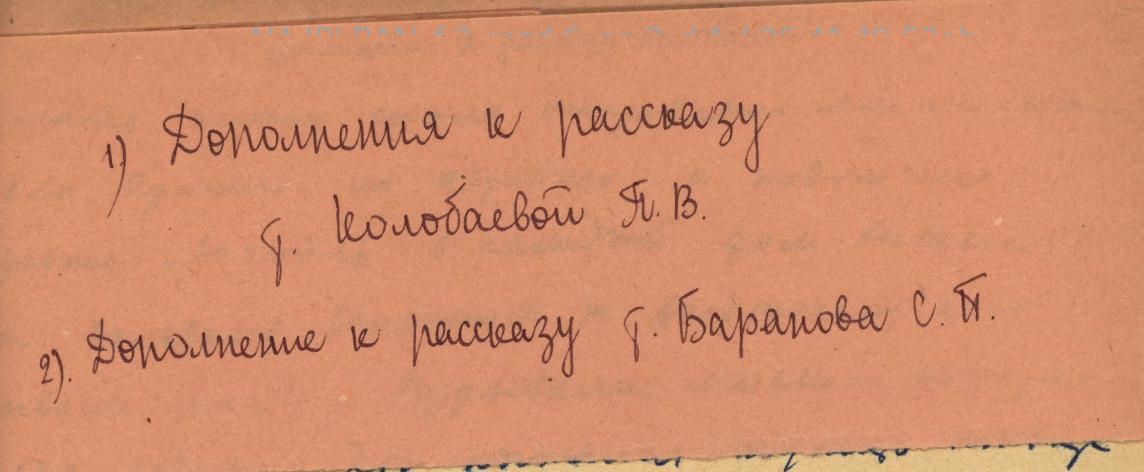 1) Дополнения к рассказу
т. Колобаевой П. В.
2). Дополнение к рассказу т. Баранова С. П.